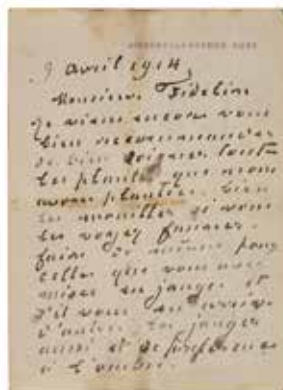 9 avril 1914
Monsieur Fidelin
Je viens encore vous
bien recommander
de bien soigner toutes
les plantes que nous
avons plantées. bien
les mouiller si vous
les voyez faner.
faire de même pour
celles que vous avez
mises en jauge. et
s'il vous en arrive
d'autres. les jauger
aussi et de préférence
à l'ombre.